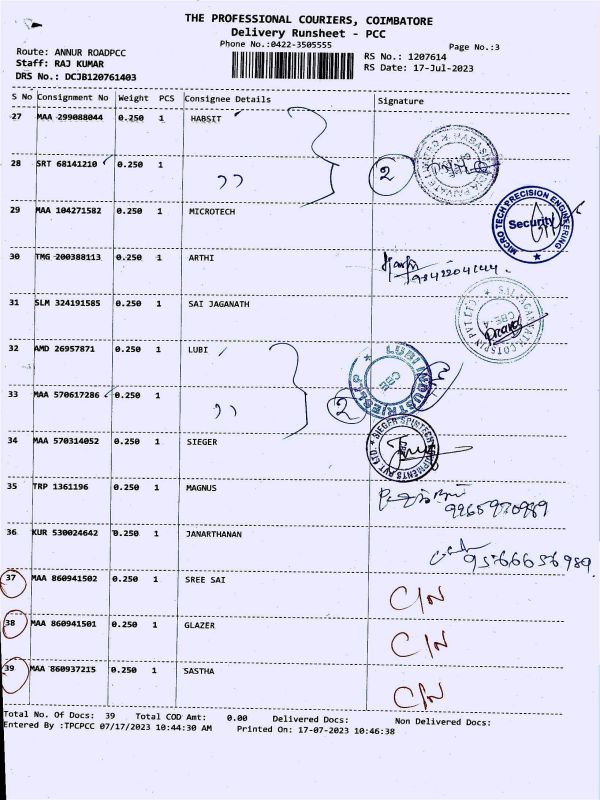 THE PROFESSIONAL COURIERS, COIMBATORE
Delivery Runsheet - PCC
Phone No.:0422-3505555
Page No.:3
Route: ANNUR ROADPCC
RS No.: 1207614
Staff: RAJ KUMAR
RS Date: 17-Jul-2023
DRS No.: DCJB120761403
S No Consignment No Weight PCS Consignee Details Signature
27 MAA 299088044 0.250 1 HABSIT
28 SRT 68141210 0.250 1 ,, 2
29 MAA 104271582 0.250 1 MICROTECH
MICRO TECH PRECISION ENGINEERING
Security
30 TMG 200388113 0.250 1 ARTHI
31 SLM 324191585 0.250 1 SAI JAGANATH
32 AMD 26957871 0.250 1 LUBI
LUBI INDUSTRIES LLP
CBE
33 MAA 570617286 0.250 1 ,, 2
34 MAA 570314052 0.250 1 SIEGER
SIEGER SPINTECH EQUIPMENTS PVT LTD.
35 TRP 1361196 0.250 1 MAGNUS
9965970989
36 KUR 530024642 0.250 1 JANARTHANAN
9566656989
37 MAA 860941502 0.250 1 SREE SAI C/N
38 MAA 860941501 0.250 1 GLAZER C/N
39 MAA 860937215 0.250 1 SASTHA C/N
Total No. Of Docs: 39 Total COD Amt: 0.00 Delivered Docs: Non Delivered Docs:
Entered By :TPCPCC 07/17/2023 10:44:30 AM Printed On: 17-07-2023 10:46:38